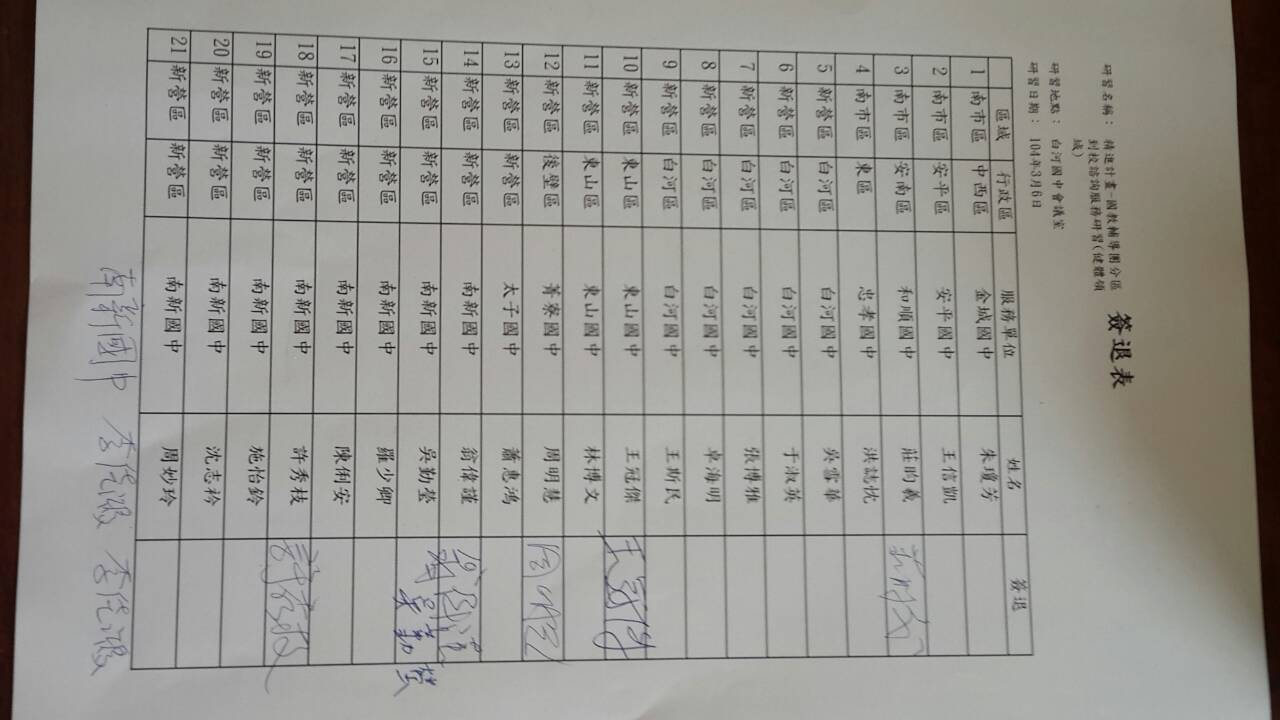 簽退表
研習名稱： 精進計畫-國教輔導團分區
到校諮詢服務研習(健體領
域)
研習地點： 白河國中會議室
研習日期： 104年3月6日
區域 行政區 服務單位 姓名 簽退
1 南市區 中西區 金城國中 朱瓊芳
2 南市區 安平區 安平國中 王信凱
3 南市區 安南區 和順國中 莊昀義
4 南市區 東區 忠孝國中 洪誌忱
5 新營區 白河區 白河國中 吳霈華
6 新營區 白河區 白河國中 于淑英
7 新營區 白河區 白河國中 張博雅
8 新營區 白河區 白河國中 卓海明
9 新營區 白河區 白河國中 王斯民
10 新營區 東山區 東山國中 王冠傑 王冠傑
11 新營區 東山區 東山國中 林博文
12 新營區 後壁區 菁寮國中 周明慧 周明慧
13 新營區 新營區 太子國中 蕭惠鴻
14 新營區 新營區 南新國中 翁偉謹
15 新營區 新營區 南新國中 吳勤瑩 吳勤瑩
16 新營區 新營區 南新國中 羅少卿
17 新營區 新營區 南新國中 陳俐安
18 新營區 新營區 南新國中 許秀枝 許秀枝
19 新營區 新營區 南新國中 施怡鈴
20 新營區 新營區 南新國中 沈志衿
21 新營區 新營區 南新國中 周妙玲
南新國中